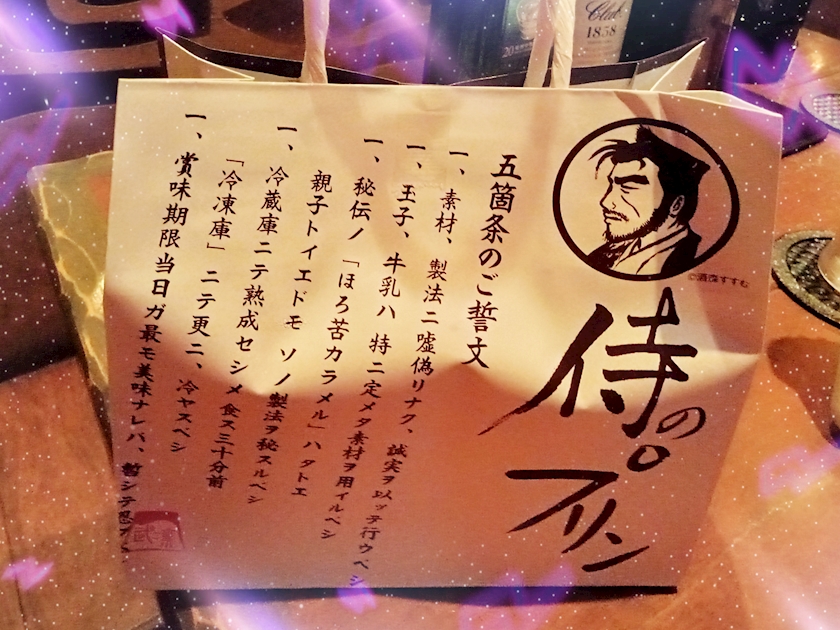 侍のプリン
©酒盛すすむ
五箇条のご誓文
一、素材、製法ニ嘘偽リナク、誠実ヲ以ッテ行ウベシ
一、玉子、牛乳ハ 特ニ定メタ素材ヲ用イルベシ
一、秘伝ノ「ほろ苦カラメル」ハ タトエ
親子トイエドモ ソノ製法ヲ秘スルベシ
一、冷蔵庫ニテ熟成セシメ 食ス三十分前
「冷凍庫」ニテ更ニ、冷ヤスベシ
一、賞味期限当日ガ最モ美味ナレバ、
Club
1858
20